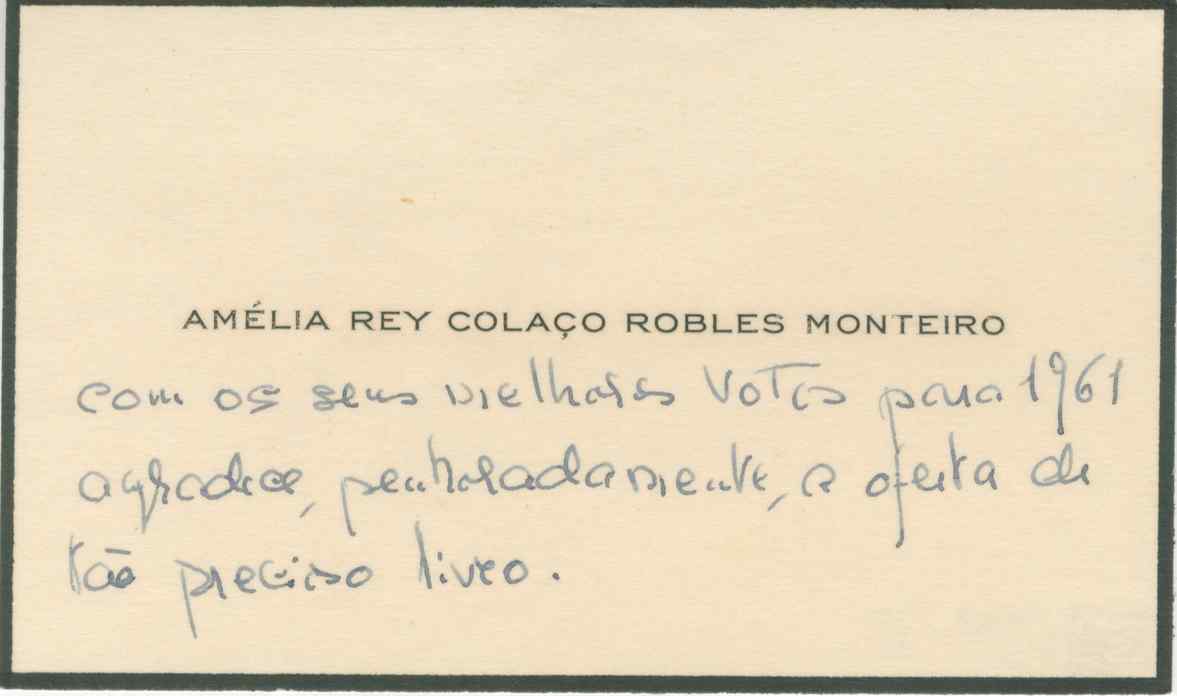 AMÉLIA REY COLAÇO ROBLES MONTEIRO
com os seus melhores votos para 1961
agradece, penhoradamente, a oferta de
tão precioso livro.